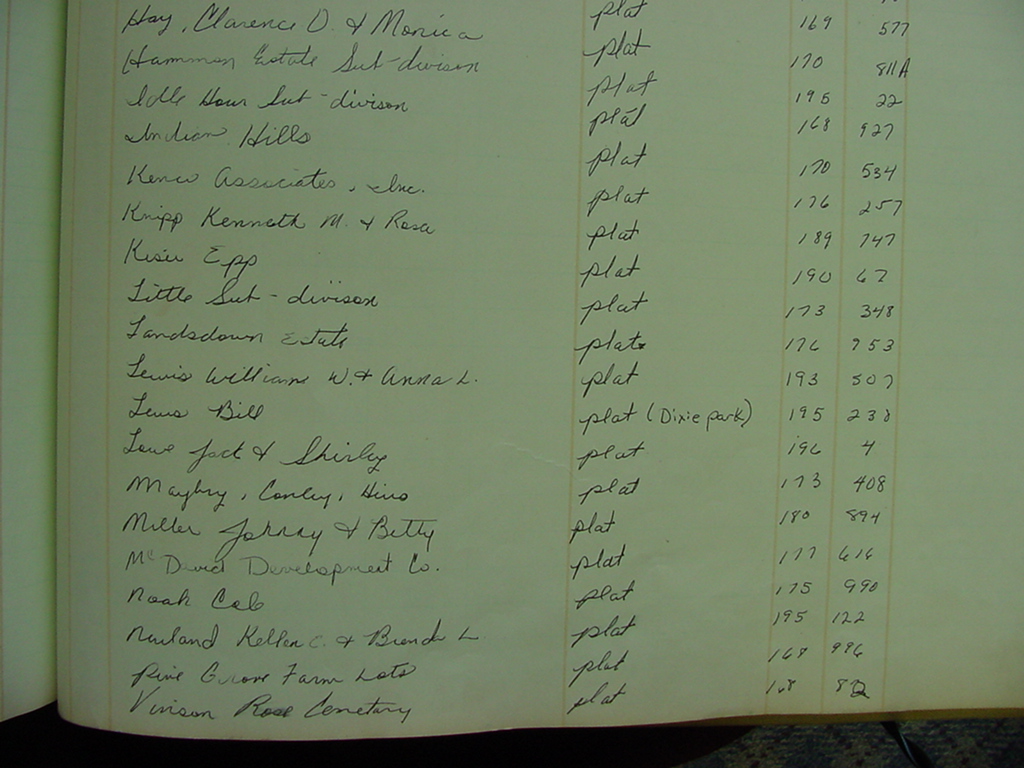 Hay, Clarence D. & Monica plat 169 577
Hammon Estate Sub-divison plat 170 811A
Idle Hour Sub-divison plat 195 22
Indian Hills plat 168 927
plat 170 534
Kenco Associates, Inc. plat 176 257
Knipp Kenneth M. & Rosa plat 189 747
Epp plat 190 67
Little Sub-divison plat 173 348
Landsdown Estate plat 176 953
Lewis William W. & Anna L. plat 193 507
Lewis Bill plat (Dixie park) 195 238
Lowe Jack & Shirley plat 196 4
Maybry, Conley, Hiro plat 173 408
Miller Johnny & Betty plat 180 894
Mc David Development Co. plat 177 616
Noah Cob plat 175 990
Newland Kellen C. & Brenda L plat 195 122
Pine Grove Farm Lots plat 169 996
Vinson Rose Cemetary plat 168 82